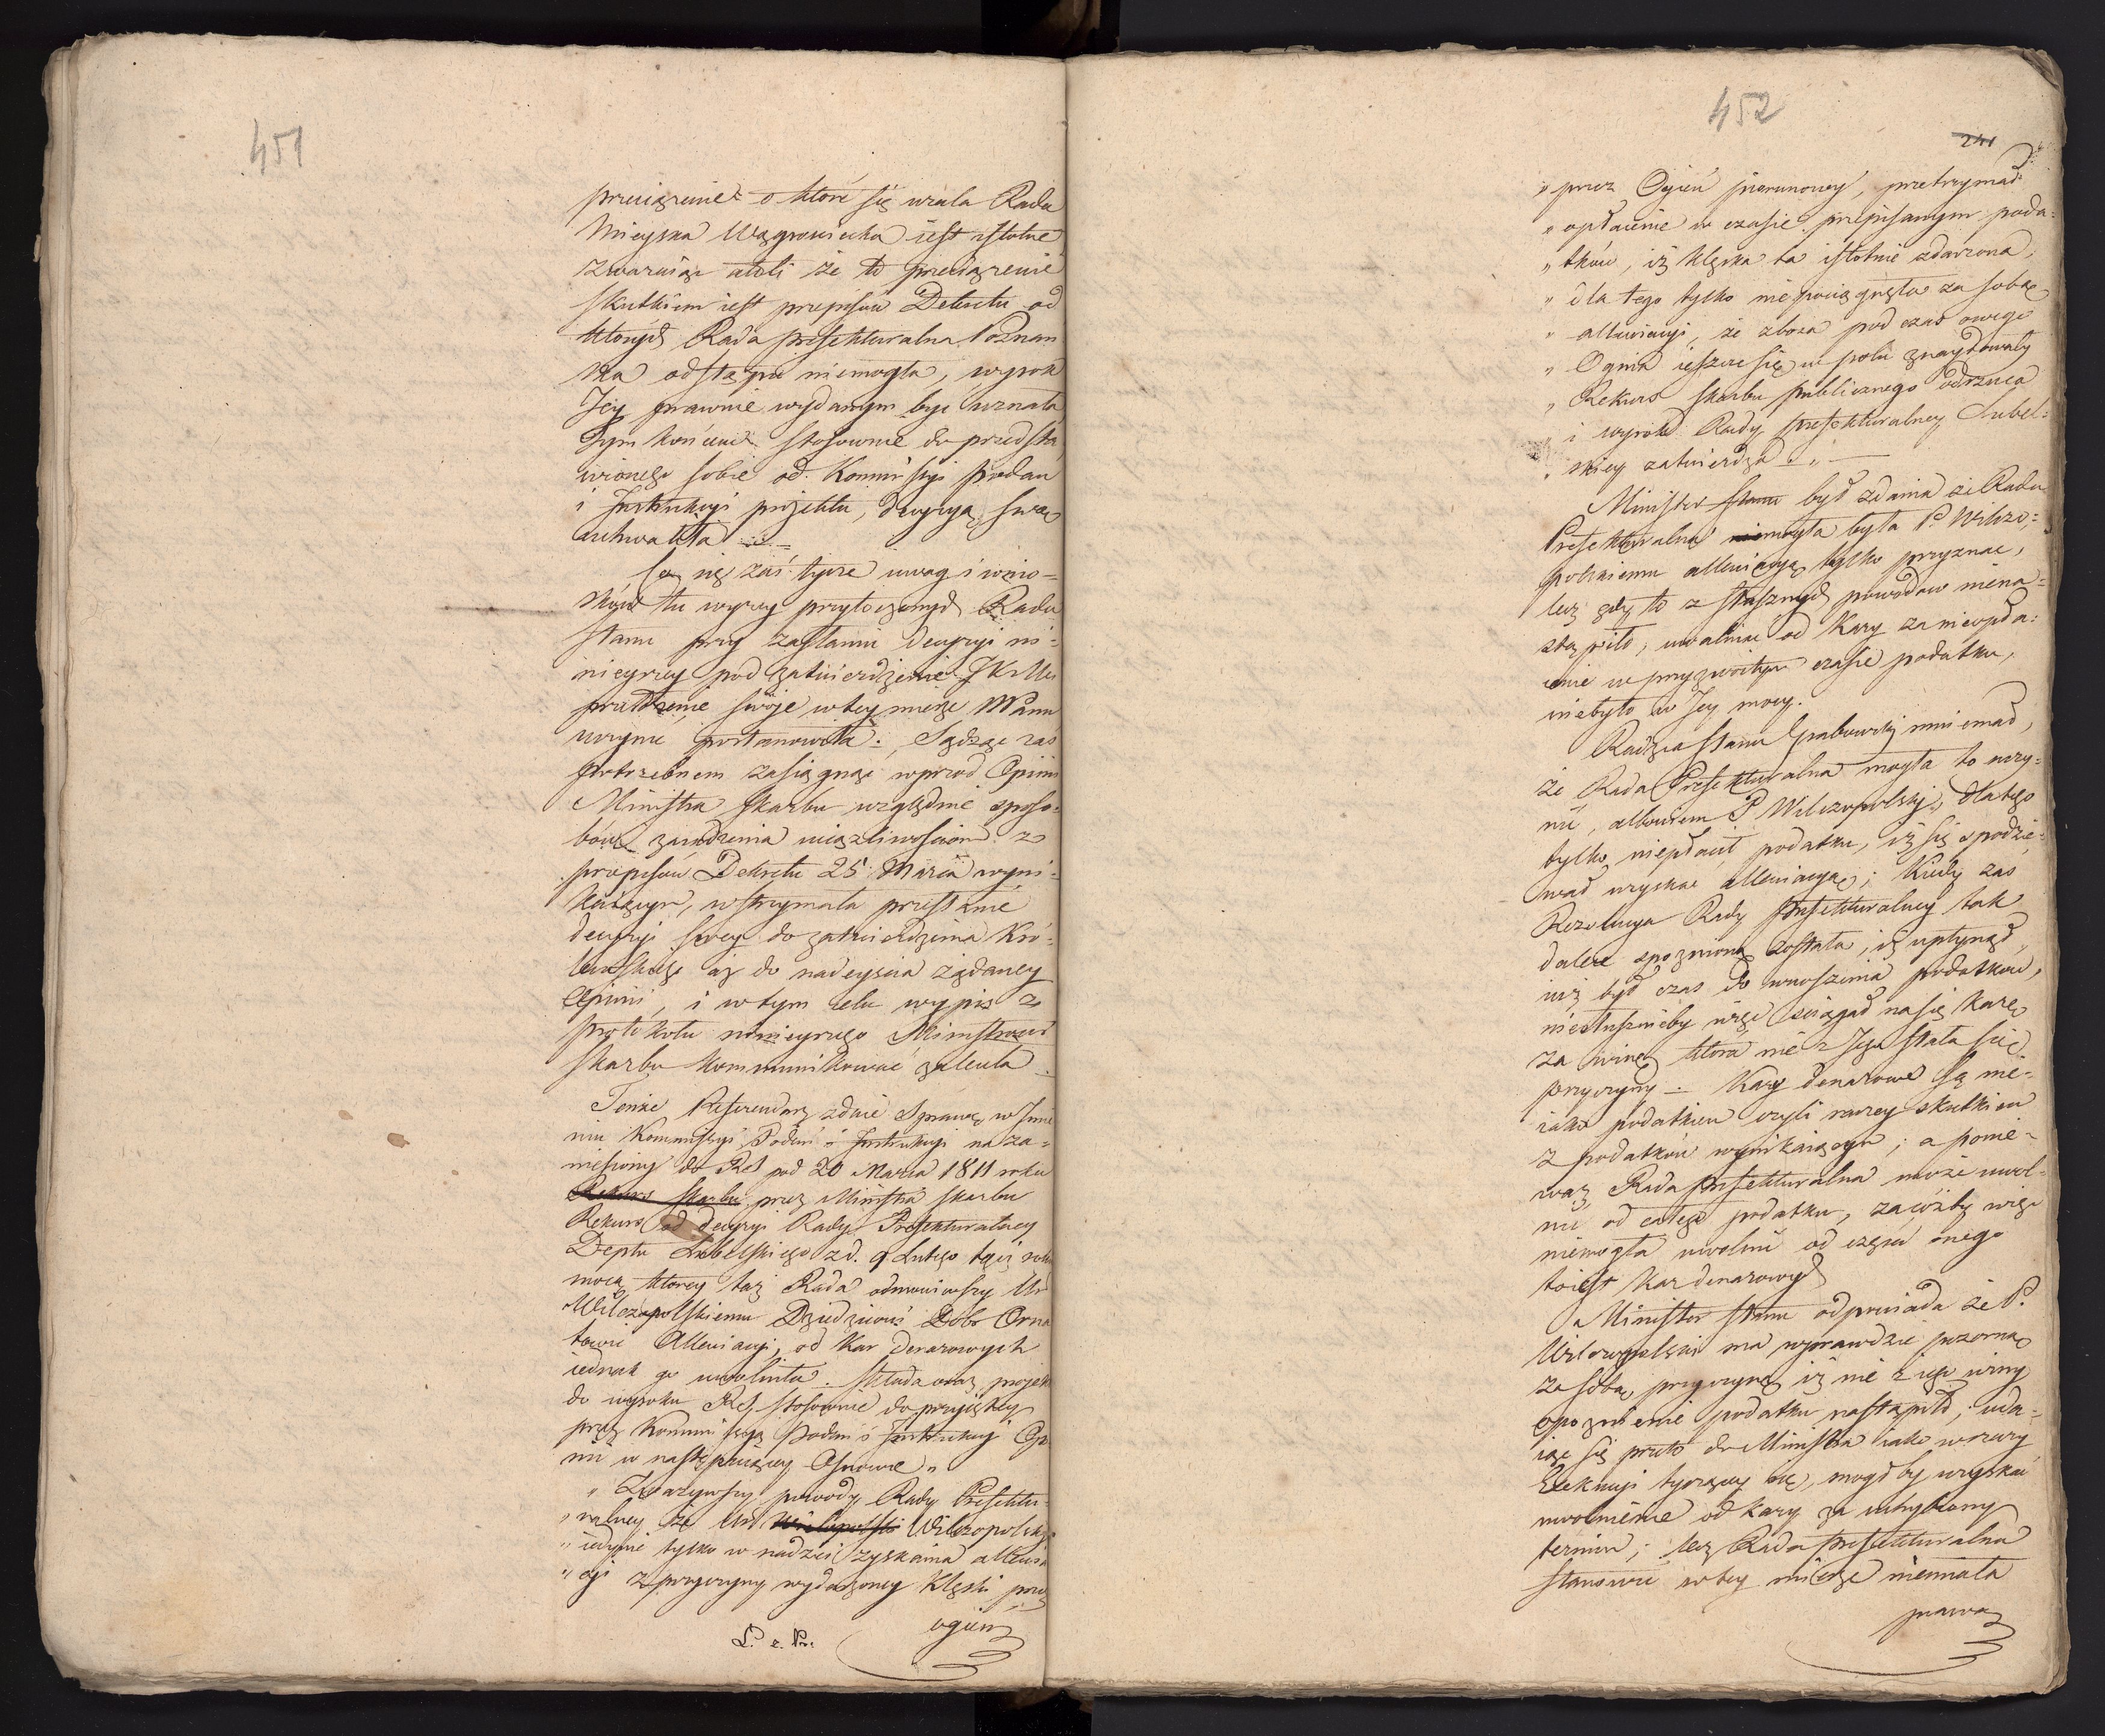 451
przeciążenie o które się użala Rada
Mieyska Wągrowiecka iest istotne
zważaiąc atoli że to przeciążenie
skutkiem iest przepisów Dekretu od
których Rada prefekturalna Poznań
ska odstąpić niemogła, wyrok
Jey prawnie wydanym być uznała
tym końcem stosownie do przedsta
wionego sobie od Kommissyi podań
i Instrukcyi projektu, decyzyą swą
uchwaliła
Co się zaś tycze uwag i wnio=
sków tu wyżey przytoczonych Rada
stanu przy zasłaniu decyzyi ni=
nieyszey pod zatwierdzenie JKMci
przełożenie swoje w tey mierze Mmu
uczynić postanowiła. Sądząc zaś
potrzebnem zasiągnąć wprzód Opinii
Ministra skarbu względnie sposo=
bów zaradzenia uciążliwościom z
przepisów Dekretu 25 Marca wyni=
kaiącym, wstrzymała przesłanie
decyzyi swey do zatwierdzenia Kró=
lewskiego aż do nadeyścia żądaney
Opinii, i w tym celu wypis z
protokołu ninieyszego Ministrowi
skarbu kommunikować zaleciła
Tenże Referendarz zdaie sprawę w Imie
niu Kommissyi Podań i Instrukcyi na za=
niesiony do RS pod 20 Marca 1811 roku
Rekurs skarbu przez Ministra skarbu
Rekurs od decyzyi Rady Prefekturalney
Deptu Lubelskiego z d. 9 Lutego tegoż roku
mocą którey taż Rada odmówiwszy Ur
Wilczopolskiemu Dziedzicowi Dóbr Orna
towic Allewiacyi, od kar denarowych
iednak go uwolniła. Składa oraz projekt
do wyroku RS, stosownie do przyiętey
przez Kommissyą Podań i Instrukcyi Opi
nii w następuiącey Osnowie „
„ Zważywszy powody Rady Prefektu=
„ ralney że Ur Wielopolski Wilczopolski
„ iedynie tylko w nadziei zyskania allewia
„ cyi z przyczyny wydarzoney klęski przez
ogień
L. e. Pr.
452
241
„ przez Ogień piorunowy, przetrzymał
„ opłacenie w czasie przepisanym poda=
„ tków, iż klęska ta istotnie zdarzona,
„ dla tego tylko nie pociągnęła za sobą
„ allewiacyi, że zboża pod czas owego
„ Ognia ieszcze się w polu znaydowały
„ Rekurs skarbu publicznego odrzuca
„ i wyrok Rady prefekturalney Lubel=
„ skiey zatwierdza. „
Minister stanu był zdania że Rada
Prefekturalna mogła była P. Wilczo=
polskiemu allewiacyą tylko przyznać,
lecz gdy to z słusznych powodów niena=
stąpiło, uwalniać od kary za nieopła=
cenie w przyzwoitym czasie podatku,
niebyło w Jey mocy.
Radzca stanu Grabowski mniemał,
że Rada Prefekturalna mogła to uczy=
nić, albowiem P Wilczopolski, dlatego
tylko niepłacił podatku, iż się spodzie=
wał uzyskać allewiacyą; kiedy zaś
Rezolucya Rady prefekturalney tak
dalece spoznioną została, iż upłynął
iuż był czas do wnoszenia podatków,
niesłusznieby więc ściągał na się karę
za winę która nie z Jego stała się
przyczyny. Kary denarowe są nie=
iako podatkiem czyli raczey skutkiem
z podatków wynikaiącym; a ponie=
waż Rada prefekturalna może uwol=
nić od całego podatku, zacóżby więc
niemogła uwolnić od części onego
toiest kar denarowych
Minister stanu odpowiada że P.
Wilczopolski ma wprawdzie pozorną
za sobą przyczynę iż nie z iego winy
opoznienie podatku nastąpiło; uda=
iąc się przeto do Ministra iako w rzeczy
Exekucyi tyczącey się, mógłby uzyskać
uwolnienie od kary za uchybiony
termin; lecz Rada prefekturalna
stanowić w tey mierze niemiała
prawa